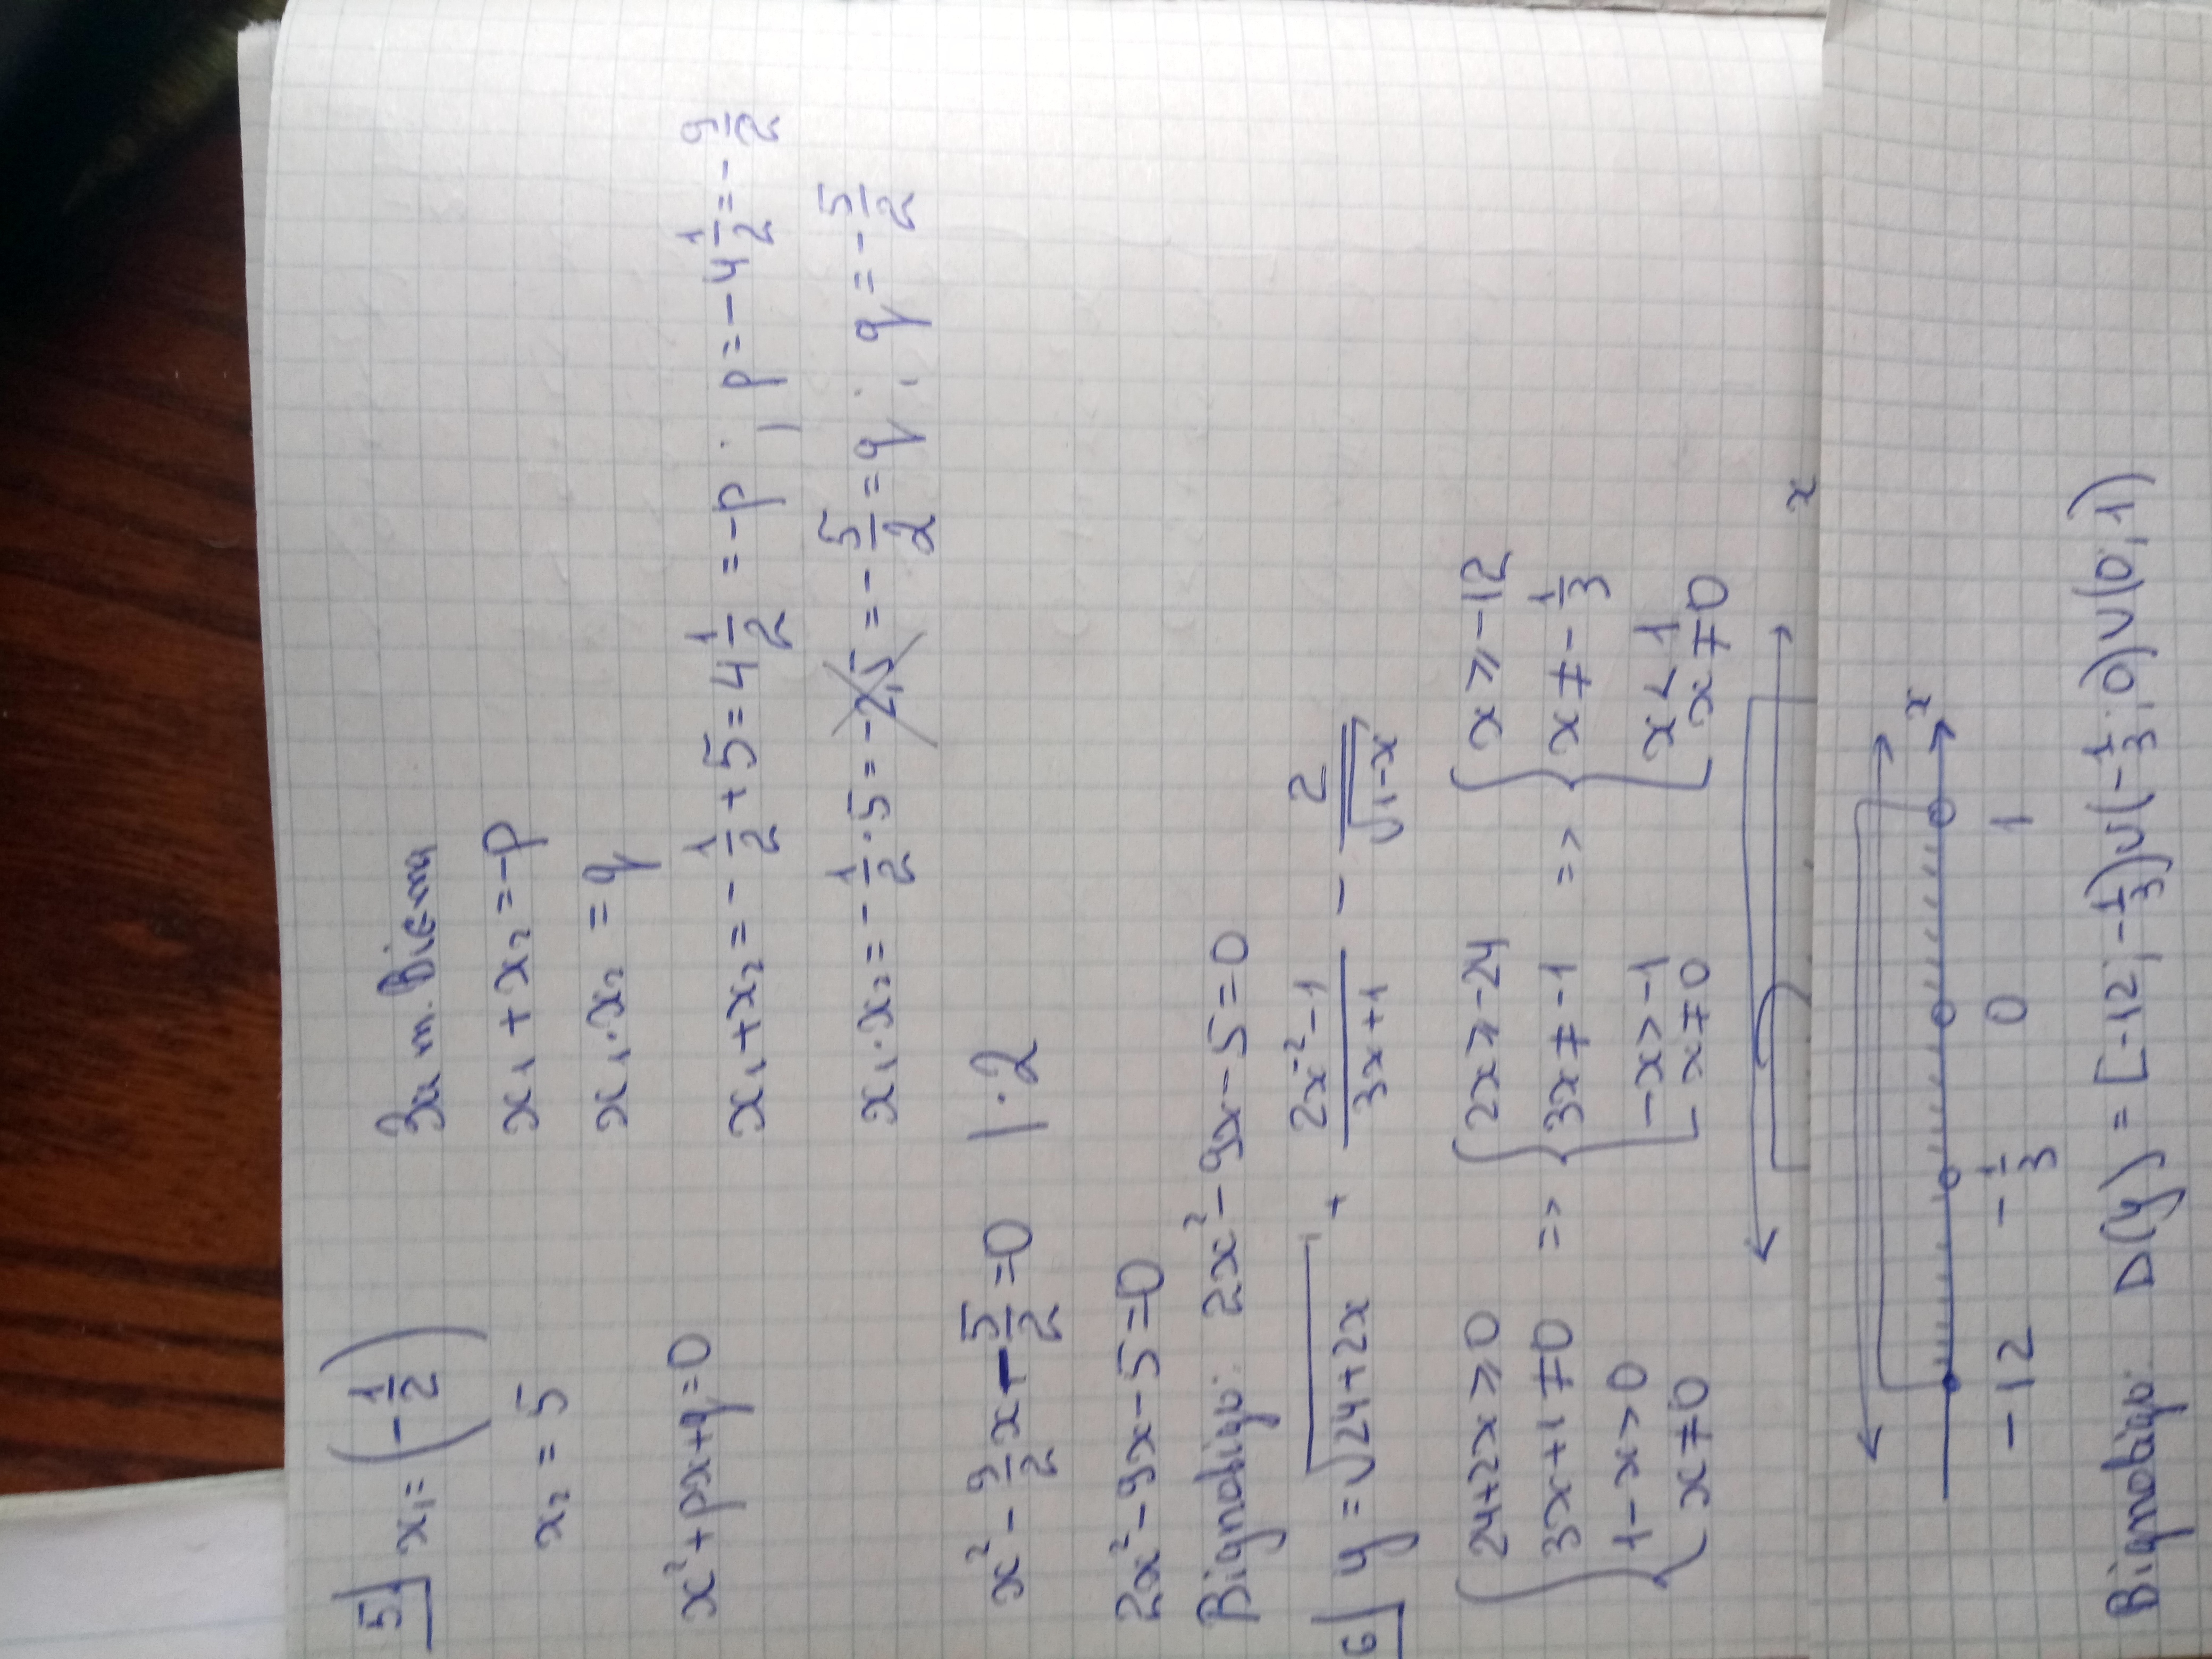 5] x₁ = (-1/2)
За т. Вієта
x₂ = 5
x₁ + x₂ = -p
x₁ · x₂ = q
x² + px + q = 0
x₁ + x₂ = -1/2 + 5 = 4 1/2 = -p ; p = -4 1/2 = -9/2
x₁ · x₂ = -1/2 · 5 = -2,5 = -5/2 = q ; q = -5/2
x² - 9/2 x - 5/2 = 0 | · 2
2x² - 9x - 5 = 0
Відповідь: 2x² - 9x - 5 = 0
6] y = √24+2x + 2x⁻² - 1 / 3x + 1 - 2 / √1-x
{ 24 + 2x ⩾ 0 => { 2x ⩾ -24 => { x ⩾ -12
3x + 1 ≠ 0 3x ≠ -1 x ≠ -1/3
1 - x > 0 -x > -1 x < 1
x ≠ 0 x ≠ 0 x ≠ 0
x
x
-12 -1/3 0 1
Відповідь: D(y) = [-12; -1/3) ∪ (-1/3; 0) ∪ (0; 1)